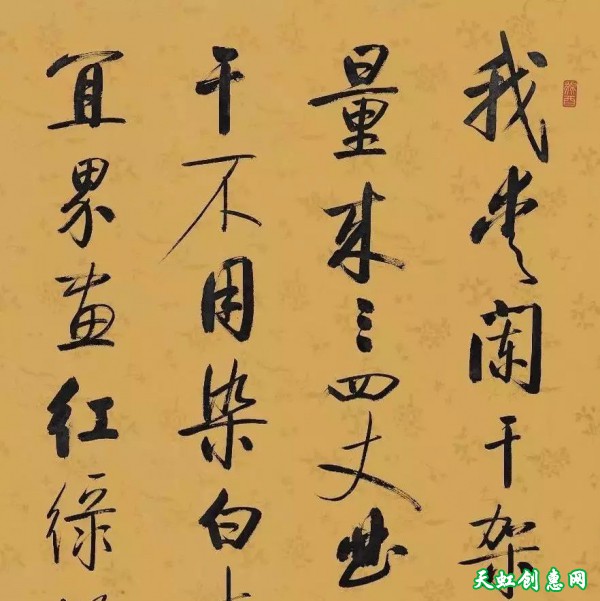 我爱阑干架
量来三四丈曲
干不用染白
宜界画红绿
天虹创惠网